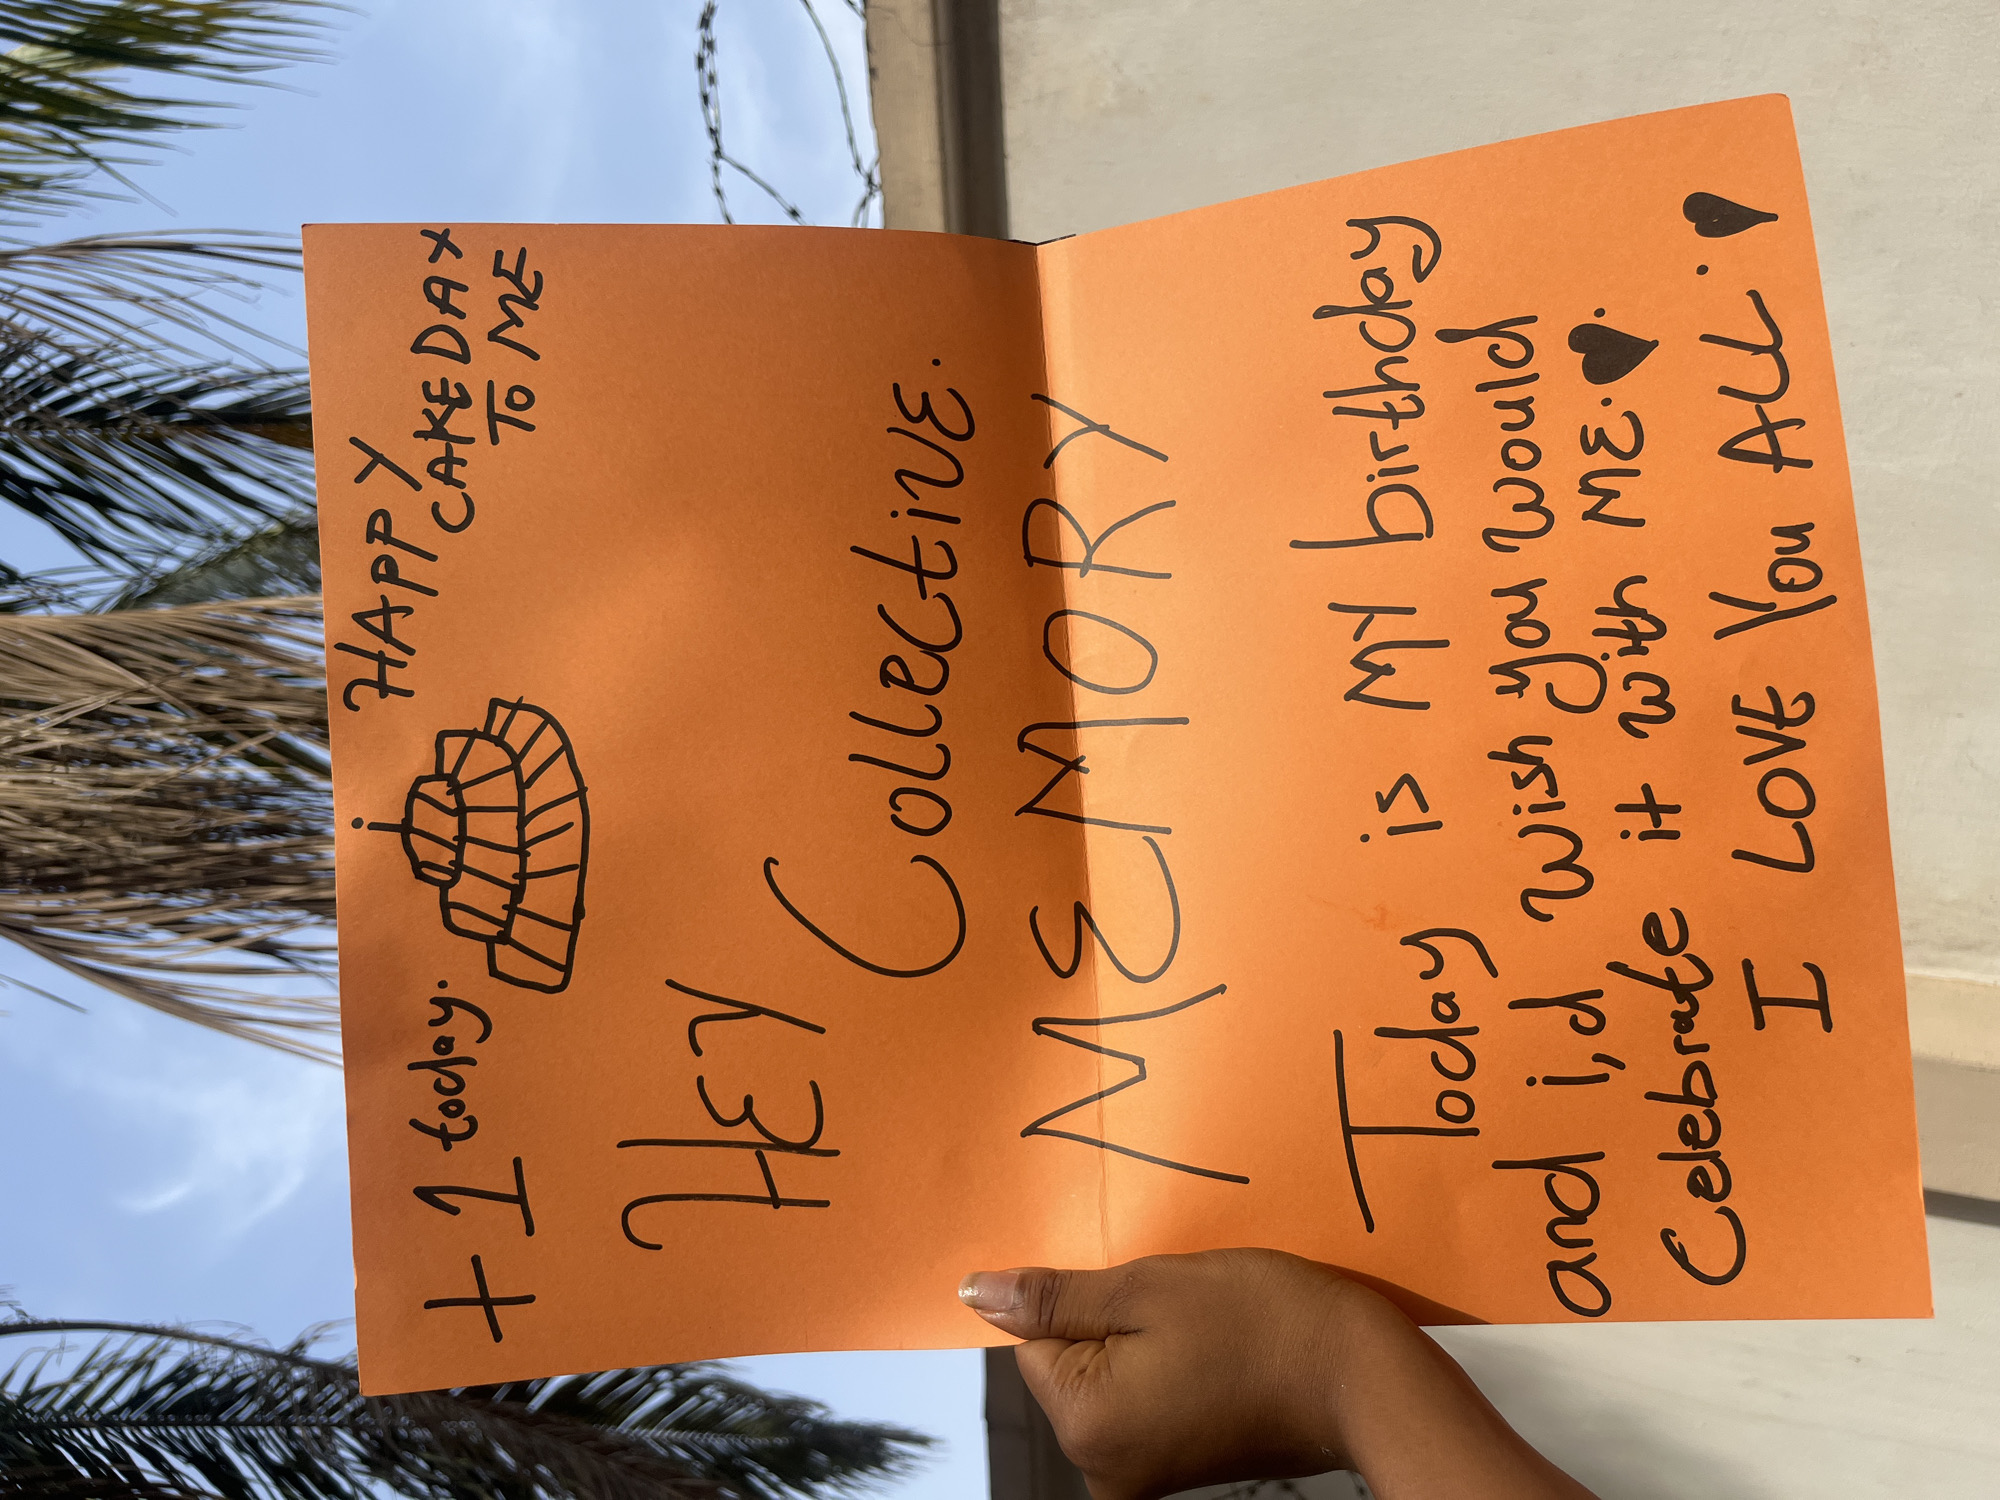 +1 today.
HAPPY
CAKEDAY
TO ME
HEY
Collective.
MEMORY
Today is MY birthday
and i,d wish you would
Celebrate it with ME. ♥.
I LOVE You ALL. ♥